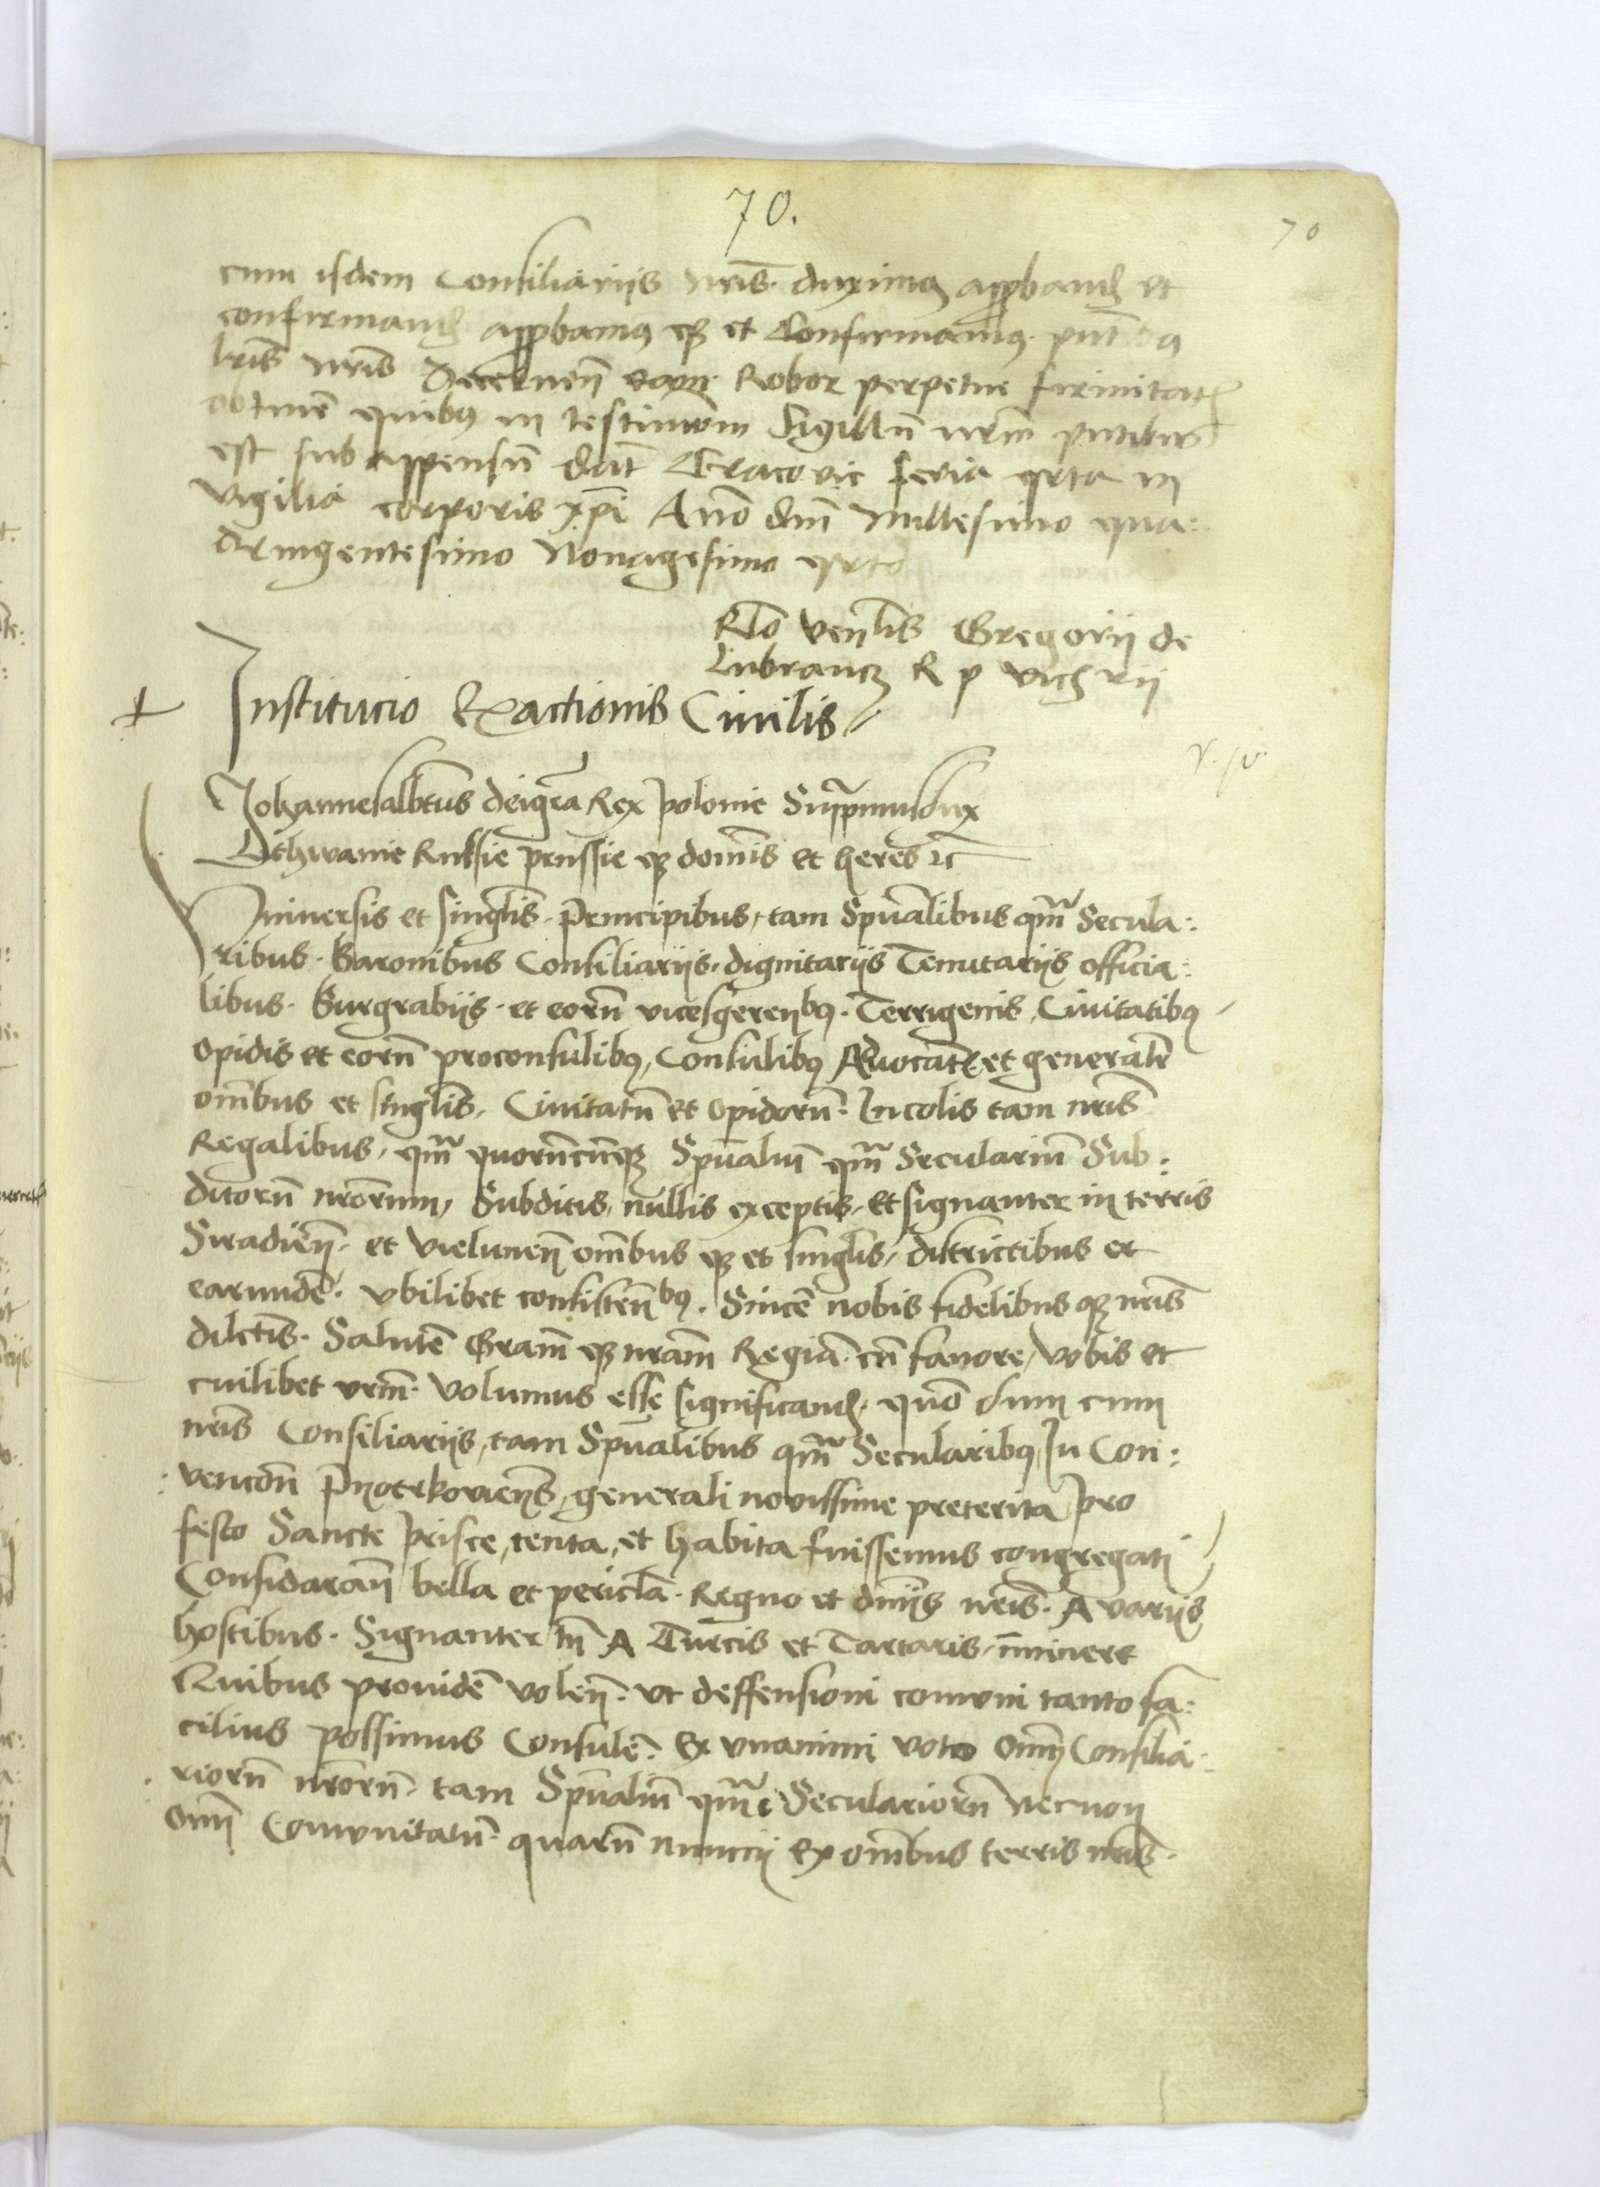 70.
70
cum isdem Consiliariis nris duximꝰ appbanđ et
confirmanđ appbamꝰ qꝫ et Confirmamus pntibꝰ
lris nris Decernen̄ eam Robor perpetue firmitatꝭ
obtinē quibꝰ in testimom Sigillū nrm pntibus
est subappensū dat̄ Cracovie feria qrta in
vigilia corporis xp̄i Anō dnī Millesimo qua:
dringentesimo Nonagesimo qrto
Rlō venlis Gregorii de
Lubrancz R p vicꝫ rii
+ Institucio Exactionis Ciuilis
Johannesalbtus deigrā Rex polonie Supremusdux
Lithwanie Russie prussie qꝫ domīs et heres ꝛc̄
Vniuersis et singlis principibus, tam Spūalibus qm̄ Secula:
ribus. Baronibus Consiliariis. dignitariis Tenutariis officia:
libus. Burgrabiis. et eorū vicesgerenbꝰ. Terrigenis, Ciuitatibꝰ
opidis et eorū proconsulibꝰ, Consulibꝰ Aduocatꝭ et generalr̄
om̄ibus et singlis, Ciuitatū et opidorū. Incolis tam nris
Regalibus, qm̄ quorūcūqꝫ Spūaliū qm̄ Seculariū Sub:
ditorū nrorum, Subditis, nullis exceptis, et signanter in terris
Siradien̄. et vielunen̄ om̄ibus qꝫ et singlis, districtibus et
earundē. vbilibet consistenbꝰ. Sincē nobis fidelibus qꝫ nris
dilctis. Salutē Gram̄ qꝫ nram̄ Regiā. cū fauore, vobis et
cuilibet vrm̄. volumus esse significanđ. quō dum cum
nris Consiliariis, tam Spūalibus qm̄ Secularibꝰ, In Con:
vencōn Pyotrkoviens̄, generali novissime preterita pro
festo Sancte prisce, tenta, et habita fuissemus congregati
Considaran̄ bella et pericla. Regno et dniis nris. A variis
hostibus. Signanter tn̄ A Turcis et Tartaris, im̄inere
Quibus prouidē volen̄. vt deffensioni comvni tanto fa:
cilius possimus Consulē. Ex vnanimi voto om̄ Consilia:
riorū nrorū. tam Spūaliū qm̄ Seculariorū necnon
om̄ Comvnitatū. quarū nuncii Ex om̄ibus terris nris.